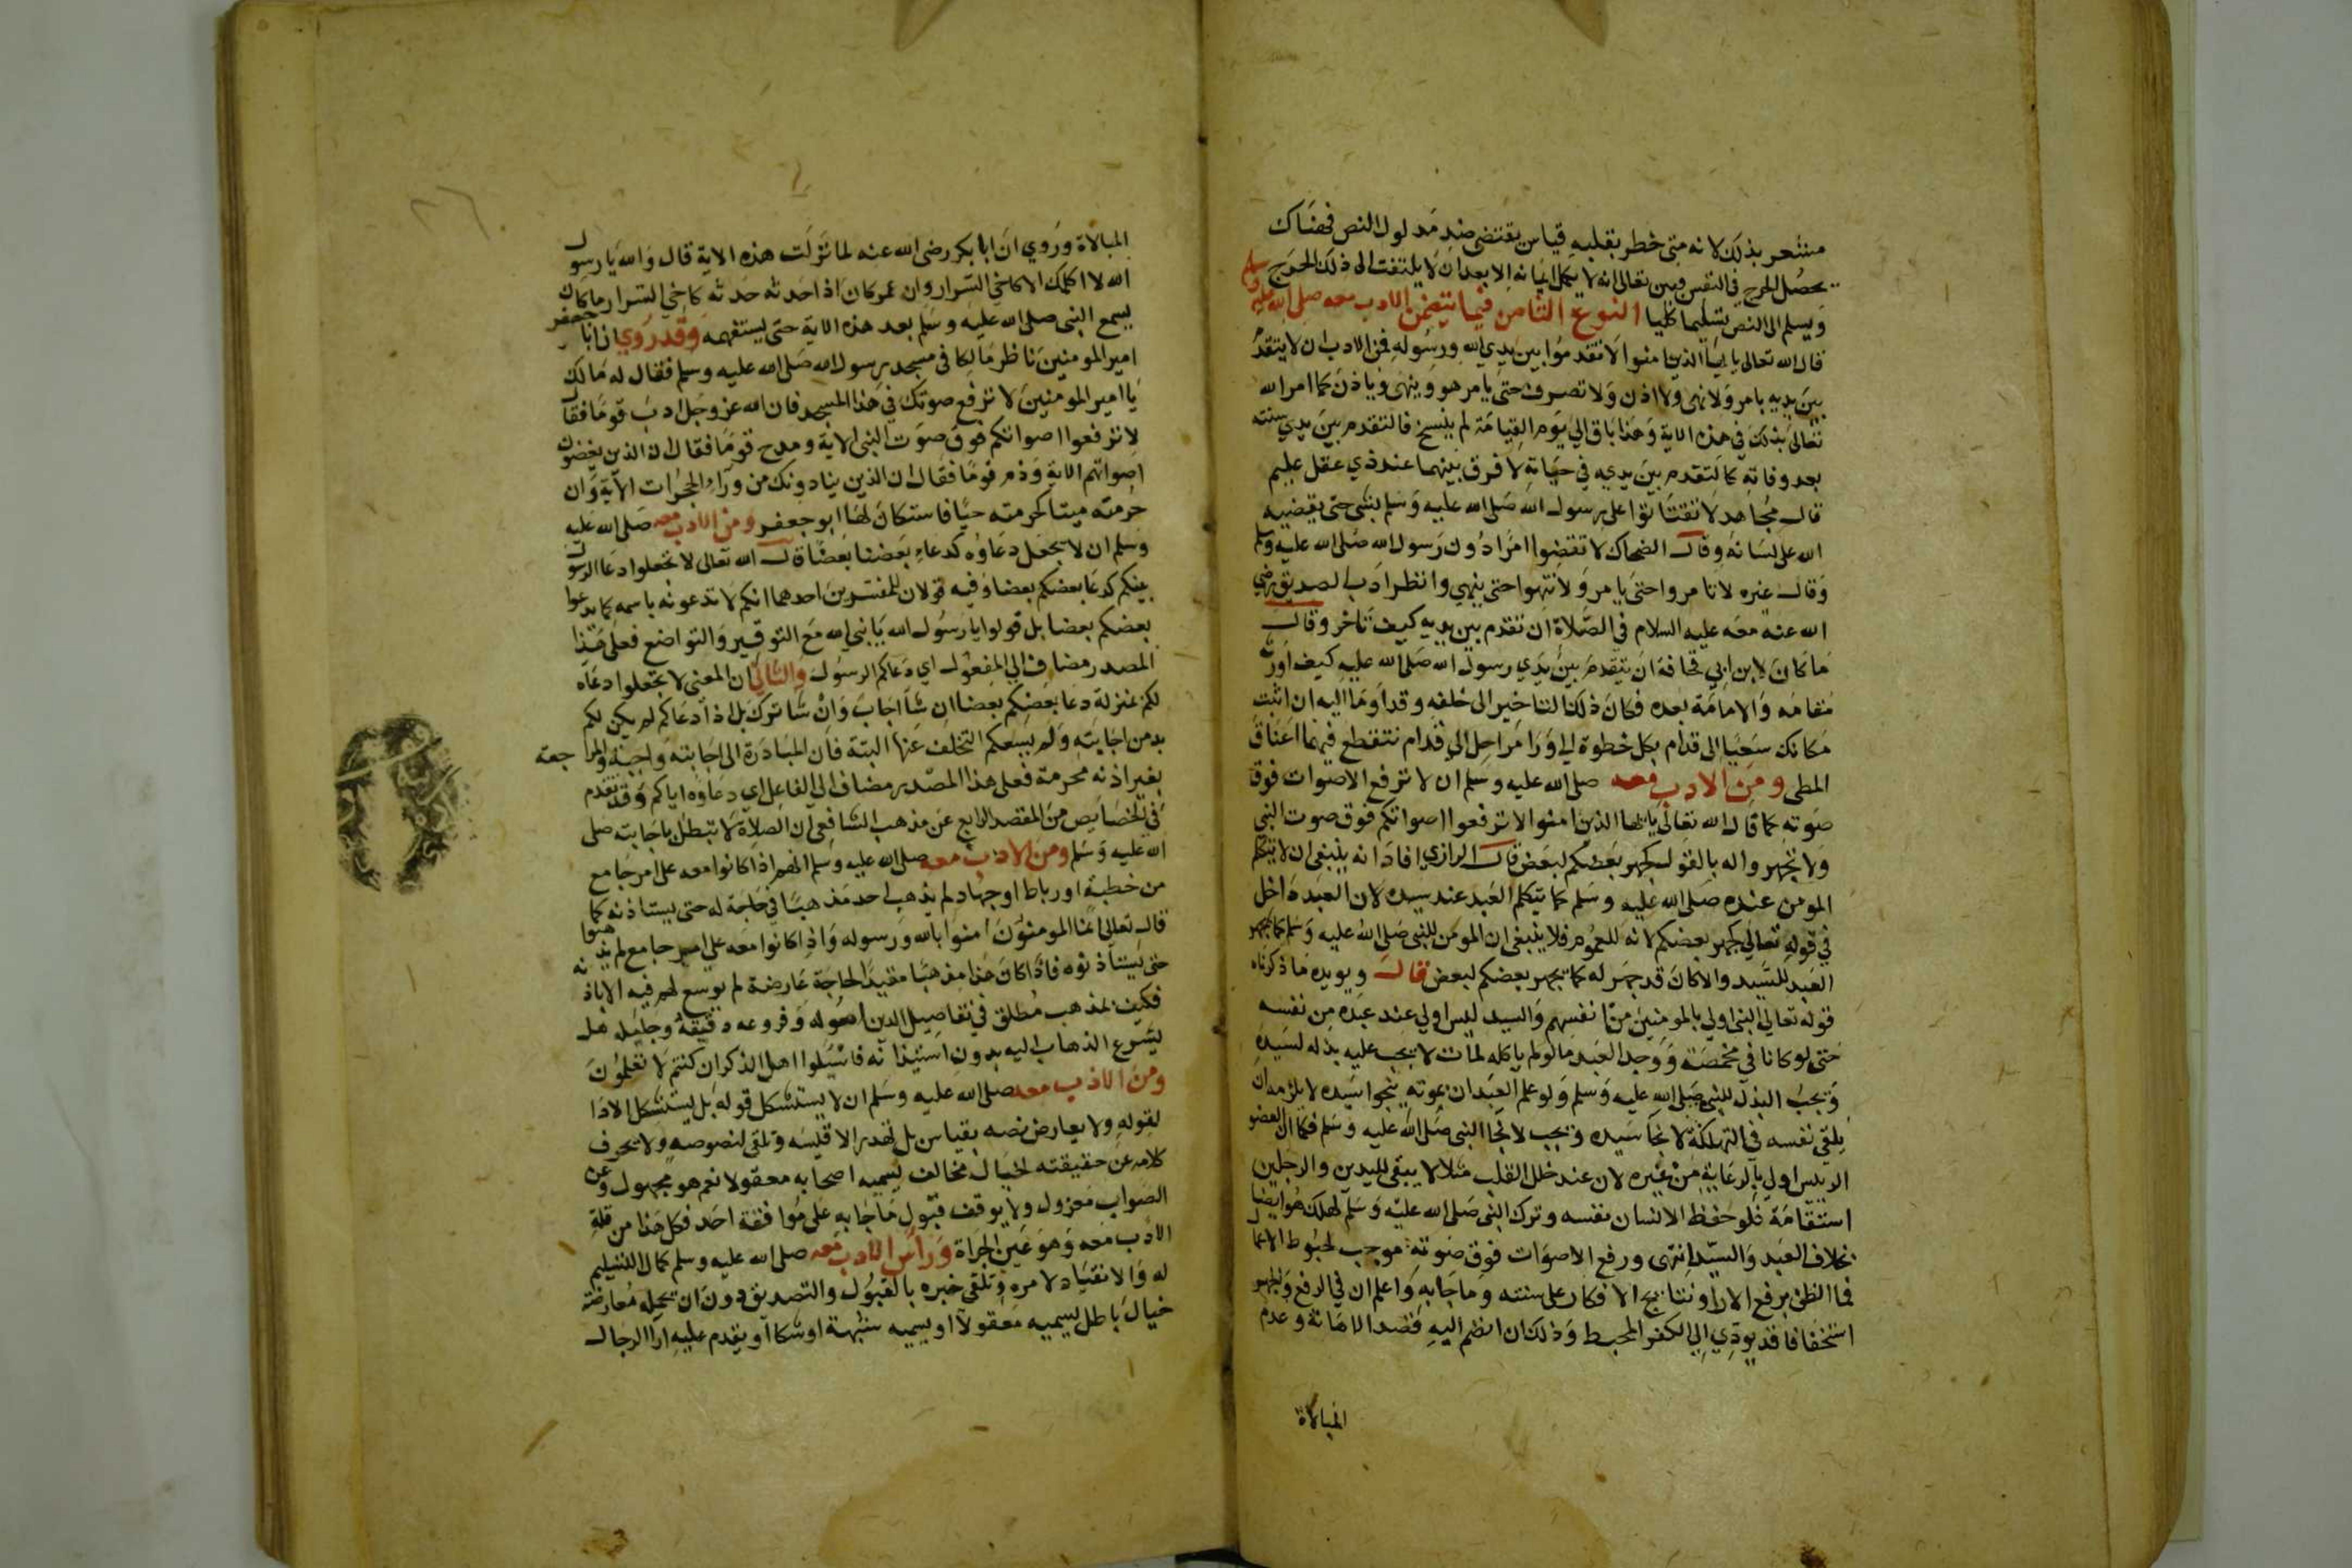 مشعر بذلك لانه متى خطر بقلبه قياس يقتضى ضد مدلول النص فهناك
يحصل الحرج في النفس فبين تعالى انه لا يكمل ايمانه الا بعد ان لا يلتفت الى ذلك الحرج
ويسلم الى النص تسليما كليا النوع الثامن فيما يتضمن الادب معه صلى الله عليه وسلم
قال الله تعالى يا ايها الذين امنوا لا تقدموا بين يدي الله ورسوله فمن الادب ان لا يتقدم
بين يديه بامر ولا نهى ولا اذن ولا تصرف حتى يامر هو وينهى وياذن كما امر الله
تعالى بذلك في هذه الاية وهذا باق الى يوم القيامة لم ينسخ فالتقدم بين يدي سنته
بعد وفاته كالتقدم بين يديه في حياته لا فرق بينهما عند ذي عقل سليم
قال مجاهد لا تفتاتوا على رسول الله صلى الله عليه وسلم بشى حتى يقضيه
الله على لسانه وقال الضحاك لا تقضوا امرا دون رسول الله صلى الله عليه وسلم
وقال غيره لا تامروا حتى يامر ولا تنهوا حتى ينهي وانظر ادب الصديق رضي
الله عنه معه عليه السلام في الصلاة ان تقدم بين يديه كيف تاخر وقال
ما كان لابن ابي قحافة ان يتقدم بين يدي رسول الله صلى الله عليه كيف اورثه
مقامه والامامة بعده فكان ذلك التاخير الى خلفه وقد اوما اليه ان اثبت
مكانك سعيا الى قدام بكل خطوة الى ورا مراحل الى قدام تتقطع فيها اعناق
المطى ومن الادب معه صلى الله عليه وسلم ان لا ترفع الاصوات فوق
صوته كما قال الله تعالى يا ايها الذين امنوا لا ترفعوا اصواتكم فوق صوت النبي
ولا تجهروا له بالقول كجهر بعضكم لبعض قال الرازي افاد انه ينبغى ان لا يتكلم
المومن عنده صلى الله عليه وسلم كما يتكلم العبد عند سيده لان العبد داخل
في قوله تعالى كجهر بعضكم لانه للعموم فلا ينبغى ان المومن للنبى صلى الله عليه وسلم كما يجهر
العبد للسيد والا كان قد جهر له كما يجهر بعضكم لبعض قال ويويده ما ذكرناه
قوله تعالى النبى اولى بالمومنين من انفسهم والسيد ليس اولي عند عبده من نفسه
حتى لو كانا في مخمصة ووجد العبد ما لو لم ياكله لمات لا يجب عليه بذله لسيده
ويجب البذل للنبى صلى الله عليه وسلم ولو علم العبد ان بموته ينجوا سيده لا يلزمه ان
يلقى نفسه في التهلكة لانجا سيده ويجب لانجا النبى صلى الله عليه وسلم فكما ان العضو
الرييس اولى بالرعاية من غيره لان عند خلل القلب مثلا لا يبقى لليدين والرجلين
استقامة فلو حفظ الانسان نفسه وترك النبى صلى الله عليه وسلم لهلك هو ايضا
بخلاف العبد والسيد انتهى ورفع الاصوات فوق صوته موجب لحبوط الاعمال
فما الظن برفع الارا ونتايج الافكار على سنته وما جا به واعلم ان في الرفع والجهر
استخفافا قد يودي الى الكفر المحبط وذلك ان انضم اليه قصد الاهانة وعدم
المبالاة
المبالاة وروي ان ابا بكر رضى الله عنه لما نزلت هذه الاية قال والله يا رسول
الله لا اكلمك الا كاخي السرار وان عمر كان اذا حدثه حدثه كاخي السرار ما كان
يسمع النبى صلى الله عليه وسلم بعد هذه الاية حتى يستفهمه وقد روي ان ابا جعفر
امير المومنين ناظر مالكا في مسجد رسول الله صلى الله عليه وسلم فقال له مالك
يا امير المومنين لا ترفع صوتك في هذا المسجد فان الله عز وجل ادب قوما فقال
لا ترفعوا اصواتكم فوق صوت النبى الاية ومدح قوما فقال ان الذين يغضون
اصواتهم الاية وذم قوما فقال ان الذين ينادونك من وراء الحجرات الاية وان
حرمته ميتا كحرمته حيا فاستكان لها ابو جعفر ومن الادب معه صلى الله عليه
وسلم ان لا يجعل دعاوه كدعاء بعضنا بعضا قال الله تعالى لا تجعلوا دعا الرسول
بينكم كدعا بعضكم بعضا وفيه قولان للمفسرين احدهما انكم لا تدعونه باسمه كما يدعوا
بعضكم بعضا بل قولوا يا رسول الله يا نبي الله مع التوقير والتواضع فعلى هذا
المصدر مضاف الى المفعول اي دعاكم الرسول والثاني ان المعنى لا تجعلوا دعاه
لكم بمنزلة دعا بعضكم بعضا ان شا اجاب وان شا ترك بل اذا دعاكم لم يكن لكم
بد من اجابته ولم يسعكم التخلف عنها البتة فان المبادرة الى اجابته واجبة والمراجعة
بغير اذنه محرمة فعلى هذا المصدر مضاف الى الفاعل اي دعاوه اياكم وقد تقدم
في الخصايص من المقصد الرابع عن مذهب الشافعى ان الصلاة لا تبطل باجابته صلى
الله عليه وسلم ومن الادب معه صلى الله عليه وسلم انهم اذا كانوا معه على امر جامع
من خطبة او رباط او جهاد لم يذهب احد مذهبا في حاجة له حتى يستاذنه كما
قال تعالى انما المومنون الذين امنوا بالله ورسوله واذا كانوا معه على امر جامع لم يذهبوا
حتى يستاذنوه فاذا كان هذا مذهبا مقيدا لحاجة عارضة لم يوسع لهم فيه الا باذنه
فكيف بمذهب مطلق في تفاصيل الدين اصوله وفروعه دقيقه وجليله هل
يشرع الذهاب اليه بدون استيذانه فاسيلوا اهل الذكر ان كنتم لا تعلمون
ومن الادب معه صلى الله عليه وسلم ان لا يستشكل قوله بل يستشكل الارا
لقوله ولا يعارض نصه بقياس بل تهدر الاقيسه وتلقى لنصوصه ولا يحرف
كلامه عن حقيقته لخيال مخالف يسميه اصحابه معقولا نعم هو مجهول وعن
الصواب معزول ولا يوقف قبول ما جا به على موافقة احد فكل هذا من قلة
الادب معه وهو عين الجراة وراس الادب معه صلى الله عليه وسلم كمال التسليم
له والانقياد لامره وتلقى خبره بالقبول والتصديق دون ان يحمله معارضة
خيال باطل يسميه معقولا او يسميه شبهة او شكا او يقدم عليه ارا الرجال